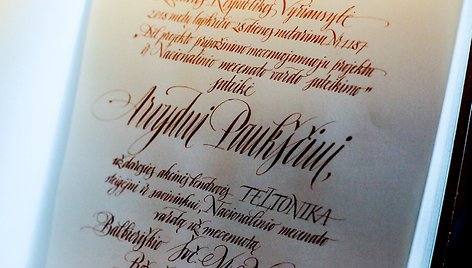 Respublikos Vyriausybė
2018 metų lapkričio 28 dienos nutarimu Nr. 1187
„Dėl projekto pripažinimo mecenuojamuoju projektu
ir Nacionalinio mecenato vardo suteikimo"
suteikė
Arvydui Paukščiui,
uždarosios akcinės bendrovės TELTONIKA
steigėjui ir savininkui, Nacionalinio mecenato
vardą už mecenuotą
Balbieriškio